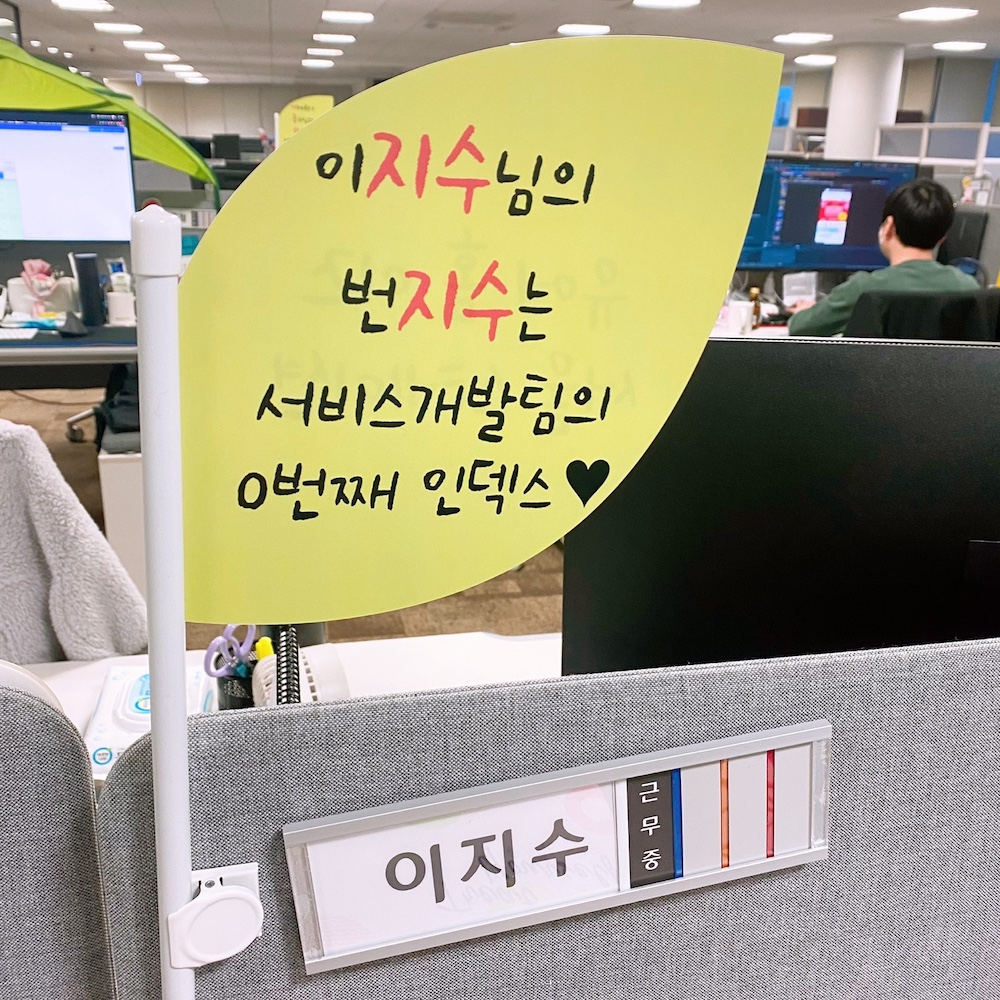 이지수님의
번지수는
서비스개발팀의
0번째 인덱스♥
이지수
근무중